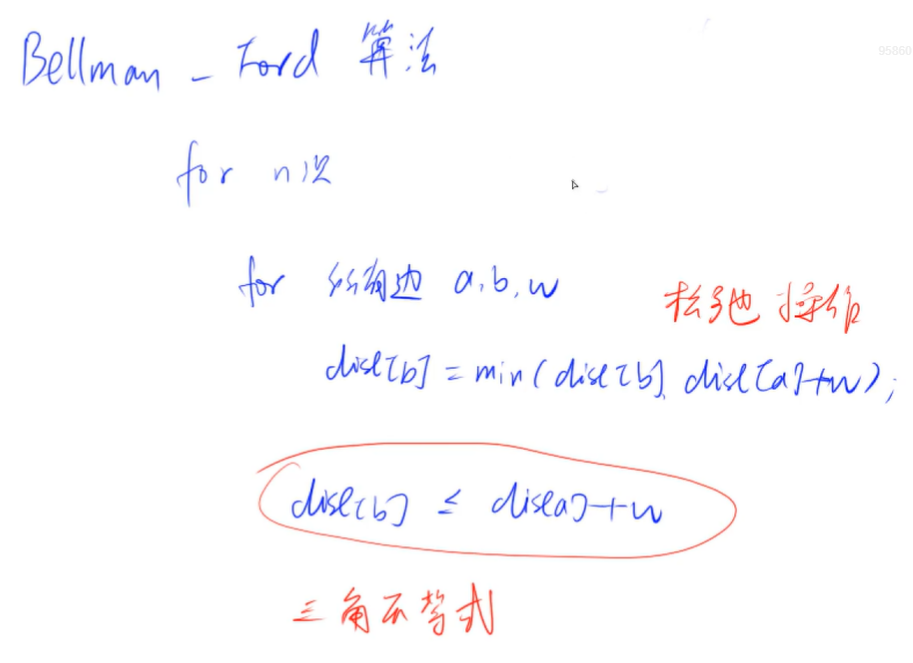 Bellman - Ford 算法
95860
for n次
for 所有边 a,b,w
松弛操作
dist[b] = min(dist[b], dist[a]+w);
dist[b] ≤ dist[a]+w
三角不等式